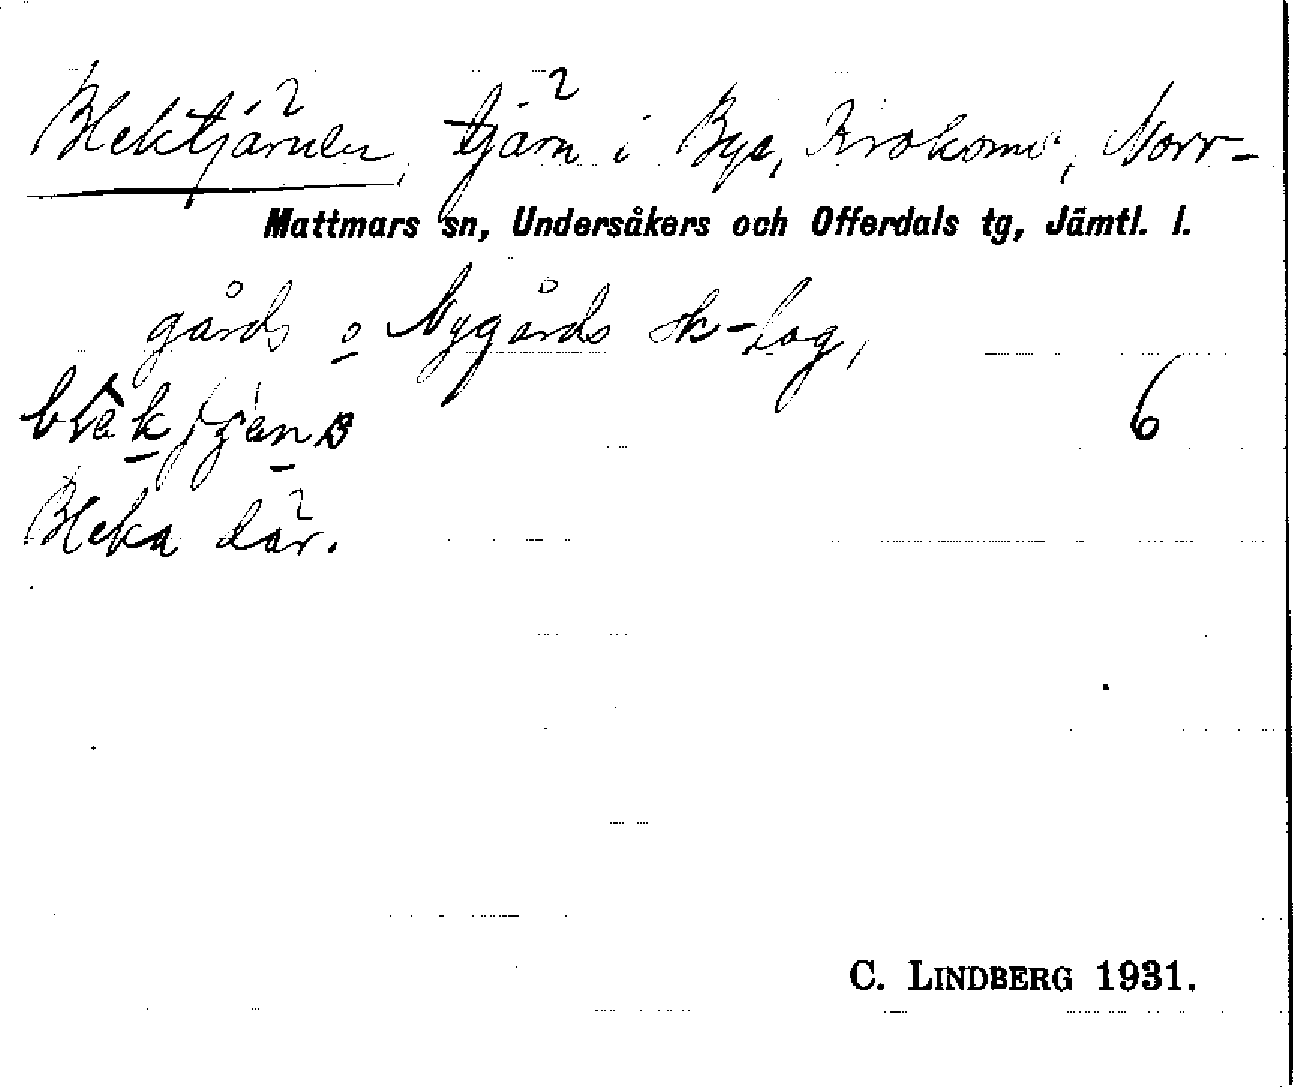 Blektjärnen, tjärn i Bye, Krokoms, Norr-
Mattmars sn, Undersåkers och Offerdals tg, Jämtl. l.
gårds o Nygårds sk-lag,
6
Bleka där.
C. LINDBERG 1931.